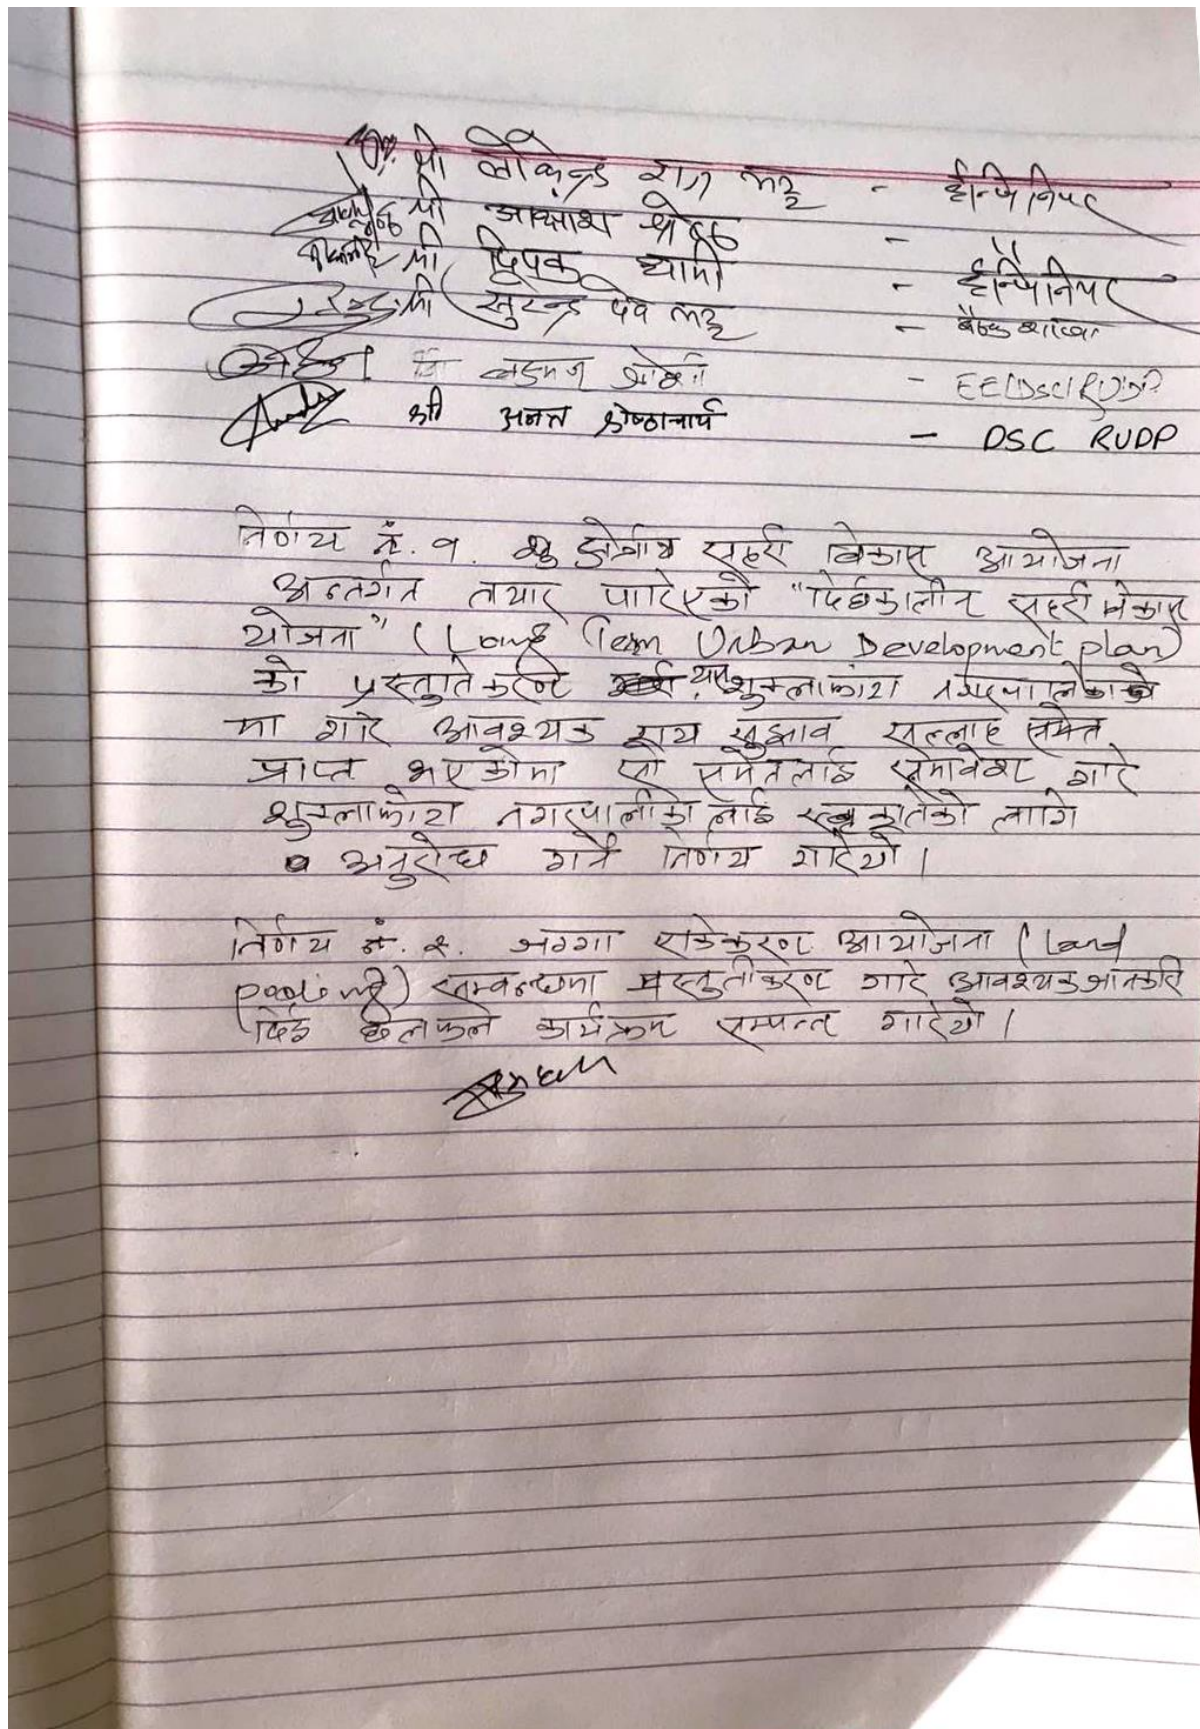 श्री लोकेन्द्र राज भट्ट - ईन्जिनियर
श्री आकाश श्रेष्ठ - "
श्री दिपक धामी - ईन्जिनियर
श्री सुरेन्द्र देव भट्ट -
जोशी - EE/DSC/RUDP
श्री अनन्त श्रेष्ठाचार्य - DSC RUDP
निर्णय नं. १. क्षेत्रीय सहरी विकास आयोजना
अन्तर्गत तयार पारिएको "दिर्घकालीन सहरी विकास
योजना" (Long Term Urban Development plan)
को प्रस्तुतिकरण यस शुक्लाफाँटा नगरपालिका
मा गरि आवश्यक राय सुझाव सल्लाह समेत
प्राप्त भएकोमा सो समेतलाई समावेश गरि
शुक्लाफाँटा नगरपालीका लाई स्वीकृतिको लागि
अनुरोध गर्ने निर्णय गरियो।
निर्णय नं. २. जग्गा एकिकरण आयोजना (Land
pooling) सम्बन्धमा प्रस्तुतीकरण गरि आवश्यक जानकारी
दिई छलफल कार्यक्रम सम्पन्न गरियो।